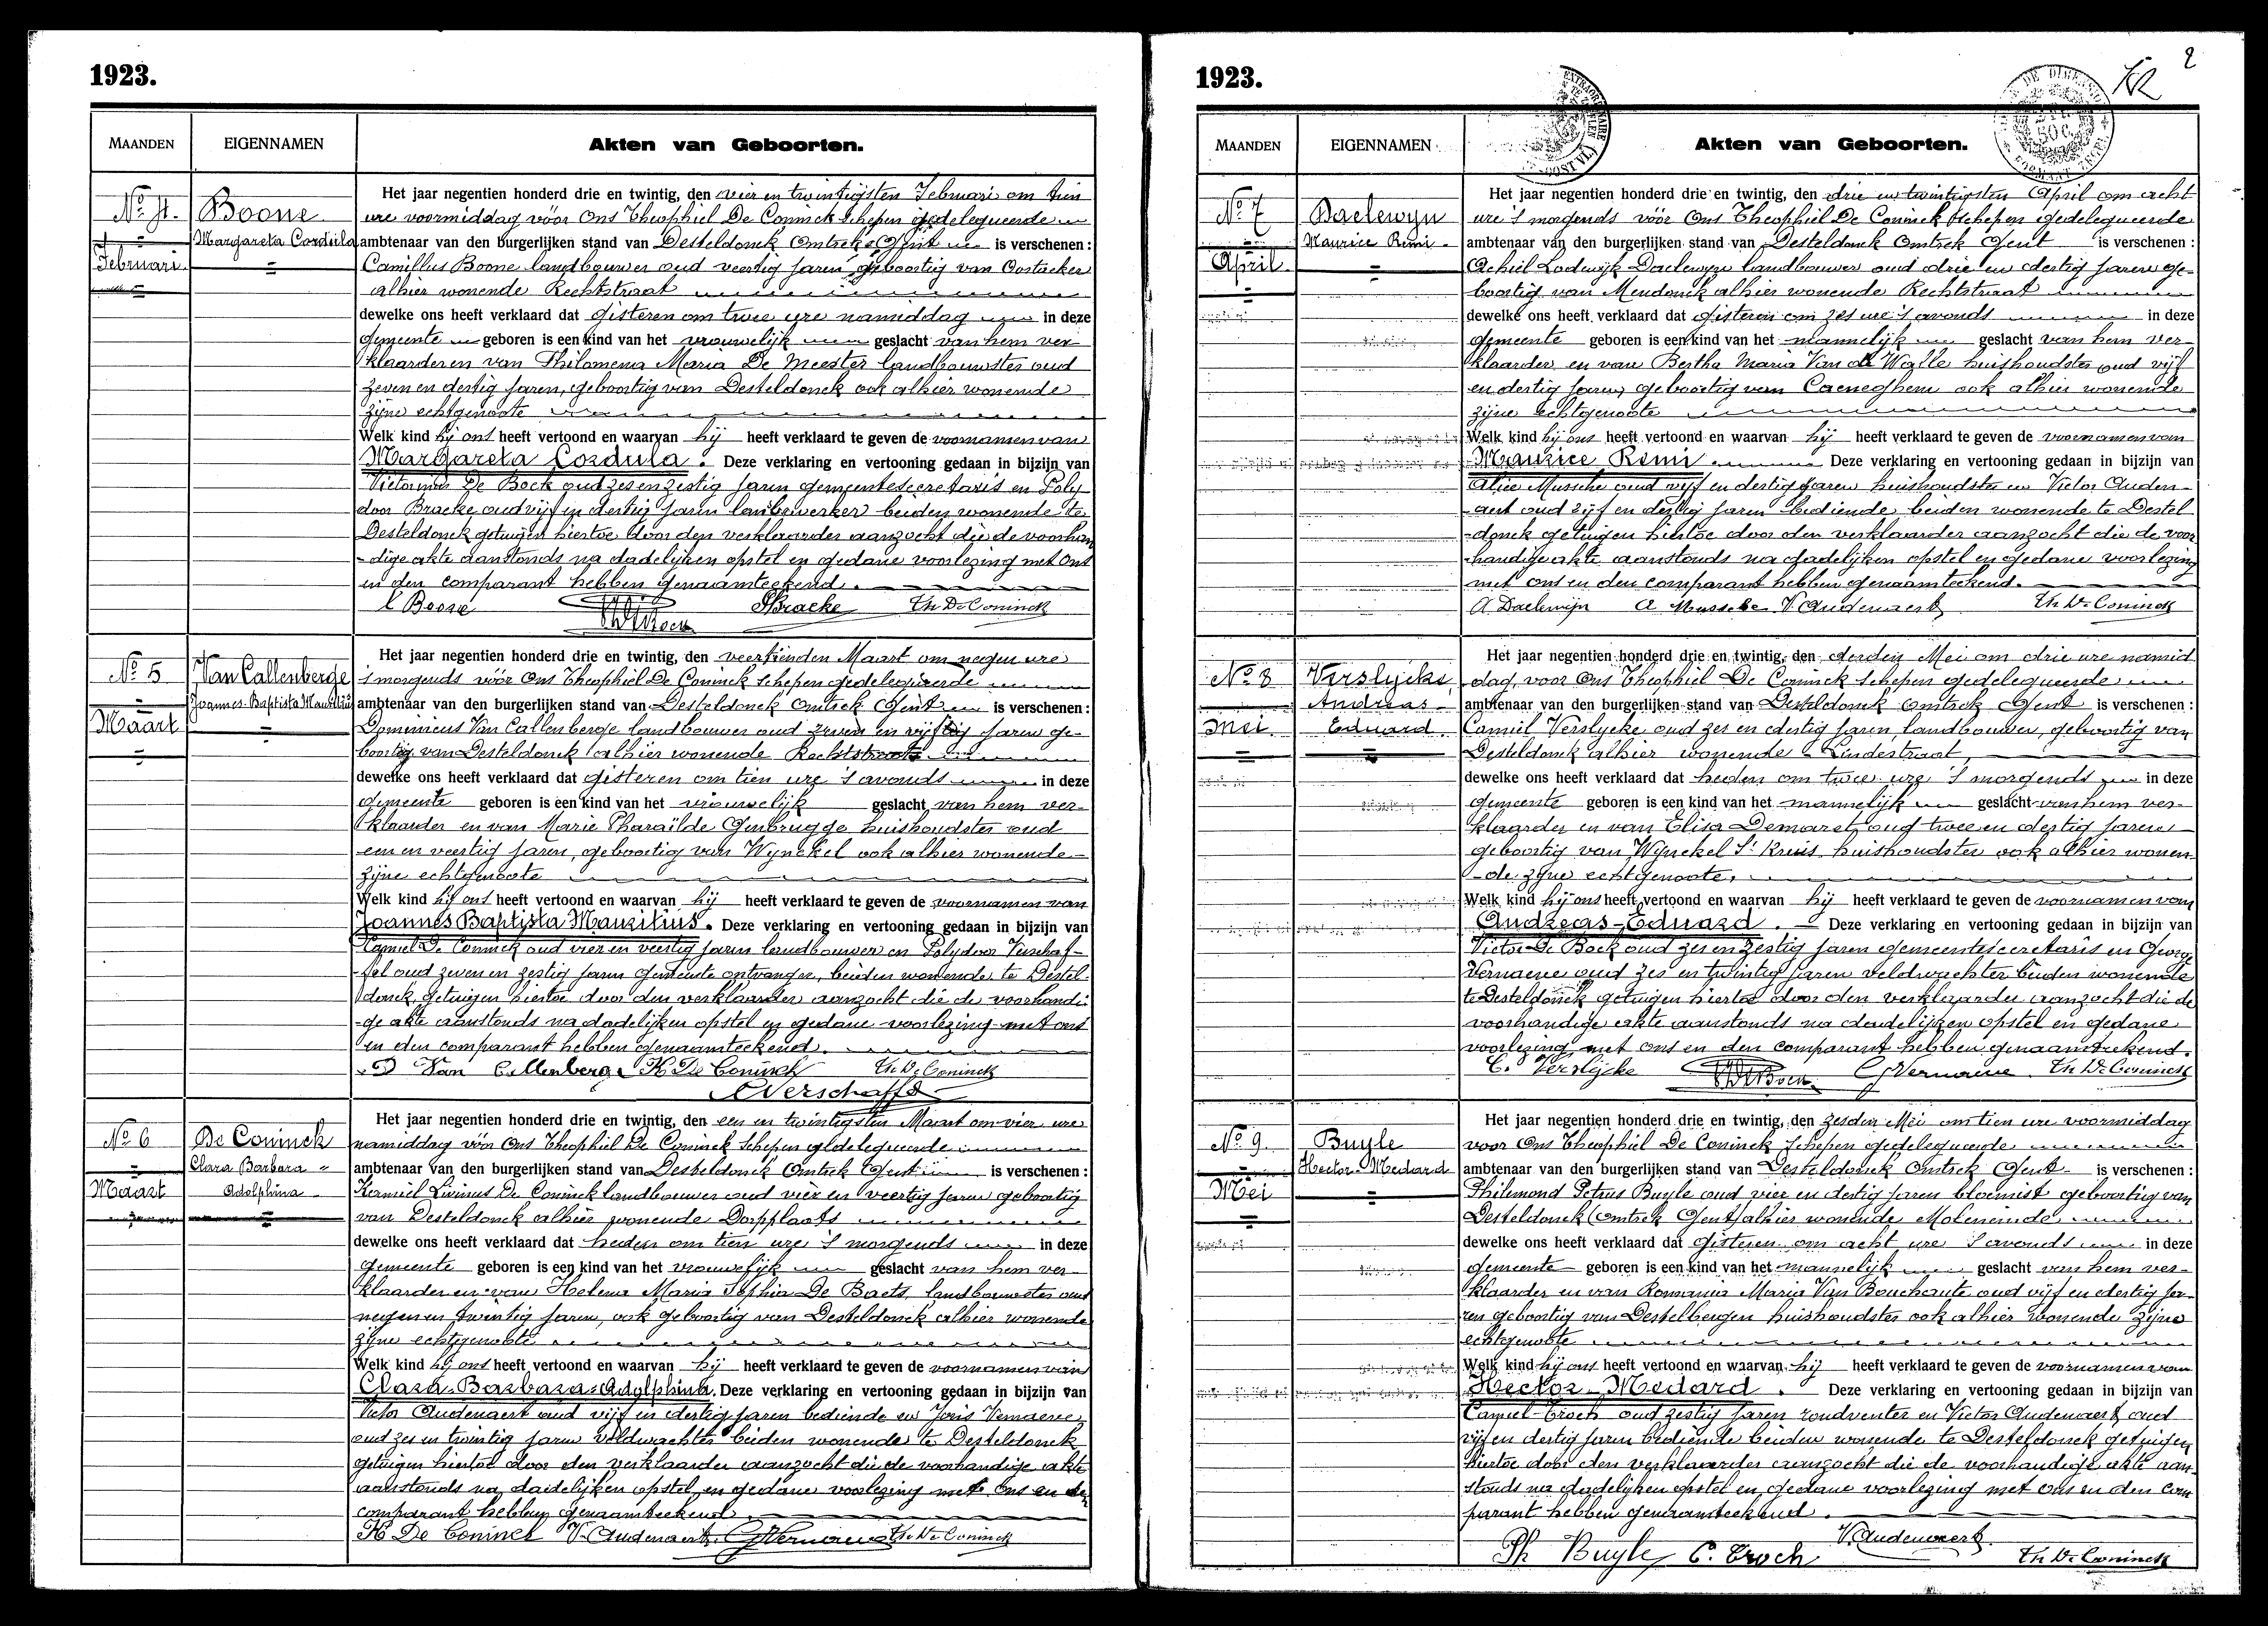 1923.
MAANDEN EIGENNAMEN Akten van Geboorten.
No 4. Boone
Margareta Cordula
Februari
Het jaar negentien honderd drie en twintig, den vier en twintigsten Februari om tien
ure voormiddag vóór Ons Theophiel De Coninck Schepen gedelegueerde
ambtenaar van den burgerlijken stand van Desteldonck Omtrek Gent is verschenen :
Camillus Boone landbouwer oud veertig jaren geboortig van Oostacker
alhier wonende Rechtstraat
dewelke ons heeft verklaard dat gisteren om twee ure namiddag in deze
gemeente geboren is een kind van het vrouwelijk geslacht van hem ver-
klaarder en van Philomena Maria De Meester landbouwster oud
zeven en dertig jaren, geboortig van Desteldonck ook alhier wonende
zijne echtgenoote
Welk kind hij ons heeft vertoond en waarvan hij heeft verklaard te geven de voornamen van
Margareta Cordula. Deze verklaring en vertooning gedaan in bijzijn van
De Bock oud zes en zestig jaren gemeentesecretaris en Poly-
door Bracke oud vijf en dertig jaren beiden wonende te
Desteldonck getuigen hiertoe door den verklaarder aanzocht die de voorhan
-dige akte aanstonds na dadelijken opstel en gedane voorlezing met Ons
en den comparant hebben genaamteekend.
C Boone Bracke Th De Coninck
No 5 Van Callenberge
Joannes-Baptista Mauritius
Maart
Het jaar negentien honderd drie en twintig, den veertienden Maart om negen ure
's morgends vóór Ons Theophiel De Coninck Schepen gedelegueerde
ambtenaar van den burgerlijken stand van Desteldonck Omtrek Gent is verschenen :
Dominicus Van Callenberge landbouwer oud zeven en vijftig jaren ge-
boortig van Desteldonck alhier wonende Rechtstraat
dewelke ons heeft verklaard dat gisteren om tien ure 's avonds in deze
gemeente geboren is een kind van het vrouwelijk geslacht van hem ver-
klaarder en van Marie Pharaïlde Genbrugge huishoudster oud
een en veertig jaren, geboortig van Wynckel ook alhier wonende
zijne echtgenoote
Welk kind hij ons heeft vertoond en waarvan hij heeft verklaard te geven de voornamen van
Joannes Baptista Mauritius. Deze verklaring en vertooning gedaan in bijzijn van
Kamiel De Coninck oud vier en veertig jaren landbouwer en Polydoor Verschaf-
-fel oud zeven en zestig jaren gemeente ontvanger, beiden wonende te Destel
donck, getuigen hiertoe door den verklaarder aanzocht die de voorhandi
-ge akte aanstonds na dadelijken opstel en gedane voorlezing met ons
en den comparant hebben genaamteekend.
D Van Callenberge K De Coninck Th De Coninck
Verschaffel
No 6 De Coninck
Clara Barbara
Maart Adolphina
Het jaar negentien honderd drie en twintig, den een en twintigsten Maart om vier ure
namiddag vóór Ons Theophiel De Coninck Schepen gedelegueerde
ambtenaar van den burgerlijken stand van Desteldonck Omtrek Gent is verschenen :
Kamiel Livinus De Coninck landbouwer oud vier en veertig jaren geboortig
van Desteldonck alhier wonende Dorpplaats
dewelke ons heeft verklaard dat heden om tien ure 's morgends in deze
gemeente geboren is een kind van het vrouwelijk geslacht van hem ver-
klaarder en van Helena Maria Sophia De Baets, landbouwster oud
negen en twintig jaren, ook geboortig van Desteldonck alhier wonende
zijne echtgenoote
Welk kind hij ons heeft vertoond en waarvan hij heeft verklaard te geven de voornamen van
Clara-Barbara-Adolphina. Deze verklaring en vertooning gedaan in bijzijn van
Victor Audenaert oud vijf en dertig jaren bediende en Joris Vernaeve
oud zes en twintig jaren veldwachter beiden wonende te Desteldonck
getuigen hiertoe door den verklaarder aanzocht die de voorhandige akte
aanstonds na dadelijken opstel en gedane voorlezing met Ons en den
comparant hebben genaamteekend
K De Coninck V. Audenaert GVernaeve Th De Coninck
2
1923.
MAANDEN EIGENNAMEN Akten van Geboorten.
No 7 Daelewyn
Maurice Remi
April
Het jaar negentien honderd drie en twintig, den drie en twintigsten April om acht
ure 's morgends vóór Ons Theophiel De Coninck Schepen gedelegueerde
ambtenaar van den burgerlijken stand van Desteldonck Omtrek Gent is verschenen :
Achiel Lodewijk Daelewyn landbouwer oud drie en dertig jaren ge-
boortig van Mendonck alhier wonende Rechtstraat
dewelke ons heeft verklaard dat gisteren om zes ure 's avonds in deze
gemeente geboren is een kind van het mannelijk geslacht van hem ver-
klaarder en van Bertha Maria Van de Walle huishoudster oud vijf
en dertig jaren, geboortig van Caeneghem ook alhier wonende
zijne echtgenoote
Welk kind hij ons heeft vertoond en waarvan hij heeft verklaard te geven de voornamen van
Maurice Remi. Deze verklaring en vertooning gedaan in bijzijn van
Alice Mussche oud vijf en dertig jaren huishoudster en Victor Auden-
-aert oud vijf en dertig jaren bediende beiden wonende te Destel
-donck getuigen hiertoe door den verklaarder aanzocht die de voor
-handige akte aanstonds na dadelijken opstel en gedane voorlezing
met ons en den comparant hebben genaamteekend.
A Daelewijn A Mussche V. Audenaert Th De Coninck
No 8 Verslycke
Andreas-
Mei Eduard
Het jaar negentien honderd drie en twintig, den derden Mei om drie ure namid
dag, voor Ons Theophiel De Coninck Schepen gedelegueerde
ambtenaar van den burgerlijken stand van Desteldonck Omtrek Gent is verschenen :
Camiel Verslycke oud zes en dertig jaren, landbouwer, geboortig van
Desteldonck alhier wonende Lindestraat
dewelke ons heeft verklaard dat heden om twee ure 's morgends in deze
gemeente geboren is een kind van het mannelijk geslacht van hem ver-
klaarder en van Elisa Demaret, oud twee en dertig jaren
geboortig van Wynckel St Kruis huishoudster ook alhier wonen
-de zijne echtgenoote,
Welk kind hij ons heeft vertoond en waarvan hij heeft verklaard te geven de voornamen van
Andreas-Eduard. Deze verklaring en vertooning gedaan in bijzijn van
Victor De Bock oud zes en zestig jaren gemeentesecretaris en George
Vernaeve oud zes en twintig jaren veldwachter beiden wonende
te Desteldonck getuigen hiertoe door den verklaarder aanzocht die de
voorhandige akte aanstonds na dadelijken opstel en gedane
voorlezing met ons en den comparant hebben genaamteekend.
C. Verslycke GVernaeve Th De Coninck
No 9. Buyle
Hector-Medard
Mei
Het jaar negentien honderd drie en twintig, den zesden Mei om tien ure voormiddag
voor Ons Theophiel De Coninck Schepen gedelegueerde
ambtenaar van den burgerlijken stand van Desteldonck Omtrek Gent is verschenen :
Philemond Petrus Buyle oud vier en dertig jaren bloemist geboortig van
Desteldonck (Omtrek Gent) alhier wonende Moleneinde
dewelke ons heeft verklaard dat gisteren om acht ure 's avonds in deze
gemeente geboren is een kind van het mannelijk geslacht van hem ver-
klaarder en van Romania Maria Van Bouchaute oud vijf en dertig ja-
ren geboortig van Destelbergen huishoudster ook alhier wonende zijne
echtgenoote
Welk kind hij ons heeft vertoond en waarvan hij heeft verklaard te geven de voornamen van
Hector-Medard. Deze verklaring en vertooning gedaan in bijzijn van
Camiel Troch oud zestig jaren rondventer en Victor Audenaert oud
vijf en dertig jaren bediende beiden wonende te Desteldonck getuigen
hiertoe door den verklaarder aanzocht die de voorhandige akte aan-
stonds na dadelijken opstel en gedane voorlezing met ons en den com
parant hebben genaamteekend.
Ph Buyle C. Troch V. Audenaert Th De Coninck